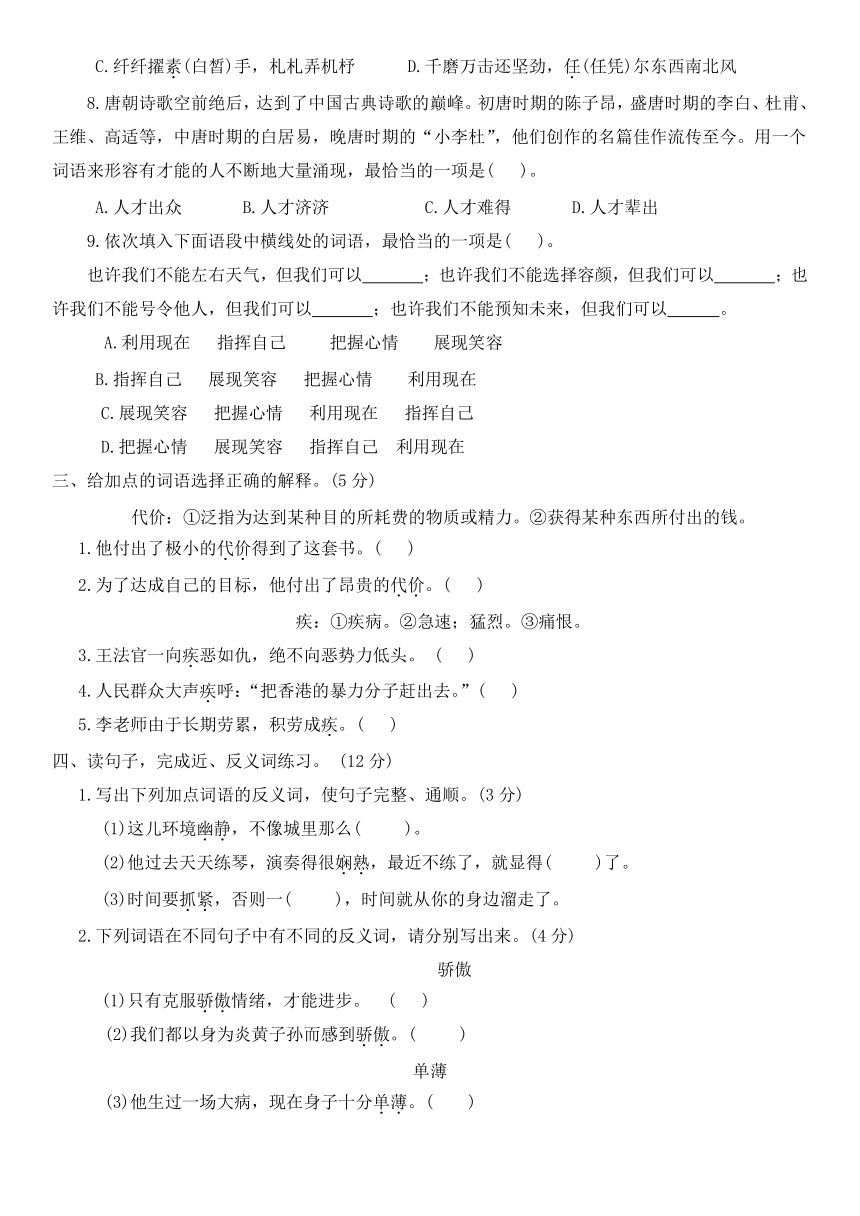 C.纤纤擢素(白皙)手，札札弄机杼 D.千磨万击还坚劲，任(任凭)尔东西南北风
8.唐朝诗歌空前绝后，达到了中国古典诗歌的巅峰。初唐时期的陈子昂，盛唐时期的李白、杜甫、
王维、高适等，中唐时期的白居易，晚唐时期的“小李杜”，他们创作的名篇佳作流传至今。用一个
词语来形容有才能的人不断地大量涌现，最恰当的一项是( )。
A.人才出众 B.人才济济 C.人才难得 D.人才辈出
9.依次填入下面语段中横线处的词语，最恰当的一项是( )。
也许我们不能左右天气，但我们可以_______；也许我们不能选择容颜，但我们可以_______；也
许我们不能号令他人，但我们可以_______；也许我们不能预知未来，但我们可以______。
A.利用现在 指挥自己 把握心情 展现笑容
B.指挥自己 展现笑容 把握心情 利用现在
C.展现笑容 把握心情 利用现在 指挥自己
D.把握心情 展现笑容 指挥自己 利用现在
三、给加点的词语选择正确的解释。(5分)
代价：①泛指为达到某种目的所耗费的物质或精力。②获得某种东西所付出的钱。
1.他付出了极小的代价得到了这套书。( )
2.为了达成自己的目标，他付出了昂贵的代价。( )
疾：①疾病。②急速；猛烈。③痛恨。
3.王法官一向疾恶如仇，绝不向恶势力低头。 ( )
4.人民群众大声疾呼：“把香港的暴力分子赶出去。”( )
5.李老师由于长期劳累，积劳成疾。( )
四、读句子，完成近、反义词练习。 (12分)
1.写出下列加点词语的反义词，使句子完整、通顺。(3分)
(1)这儿环境幽静，不像城里那么( )。
(2)他过去天天练琴，演奏得很娴熟，最近不练了，就显得( )了。
(3)时间要抓紧，否则一( )，时间就从你的身边溜走了。
2.下列词语在不同句子中有不同的反义词，请分别写出来。(4分)
骄傲
(1)只有克服骄傲情绪，才能进步。 ( )
(2)我们都以身为炎黄子孙而感到骄傲。( )
单薄
(3)他生过一场大病，现在身子十分单薄。( )